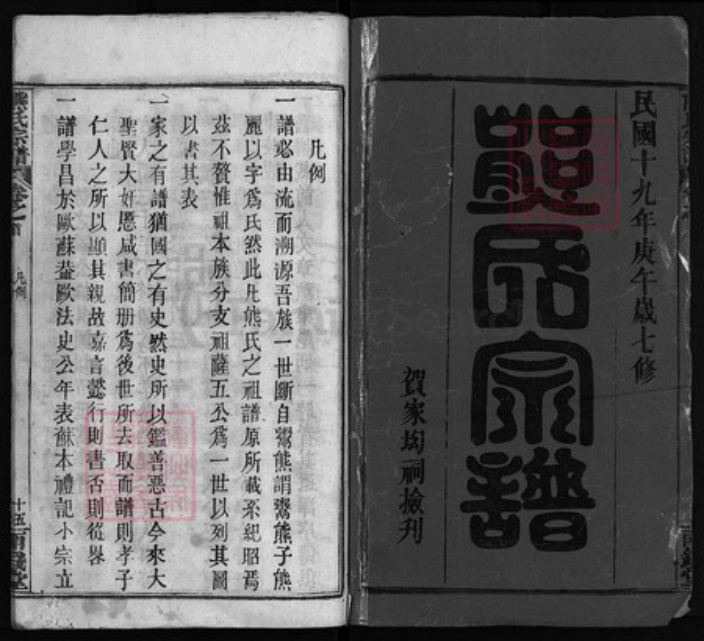 民國十九年庚午歲七修
熊氏宗譜
賀家坳祠撿刊
凡例
一譜必由流而溯源吾族一世斷自鬻熊謂鬻熊子熊
麗以字爲氏然此凡熊氏之祖譜原所載系紀昭焉
茲不贅惟祖本族分支祖薩五公爲一世以列其圖
以書其表
一家之有譜猶國之有史然史所以鑑善惡古今來大
聖賢大奸慝咸書簡册爲後世所去取而譜則孝子
仁人之所以顯其親故嘉言懿行則書否則從畧
一譜學昌於歐蘇葢歐法史公年表蘇本禮記小宗立
熊氏宗譜 卷之首 凡例 十五